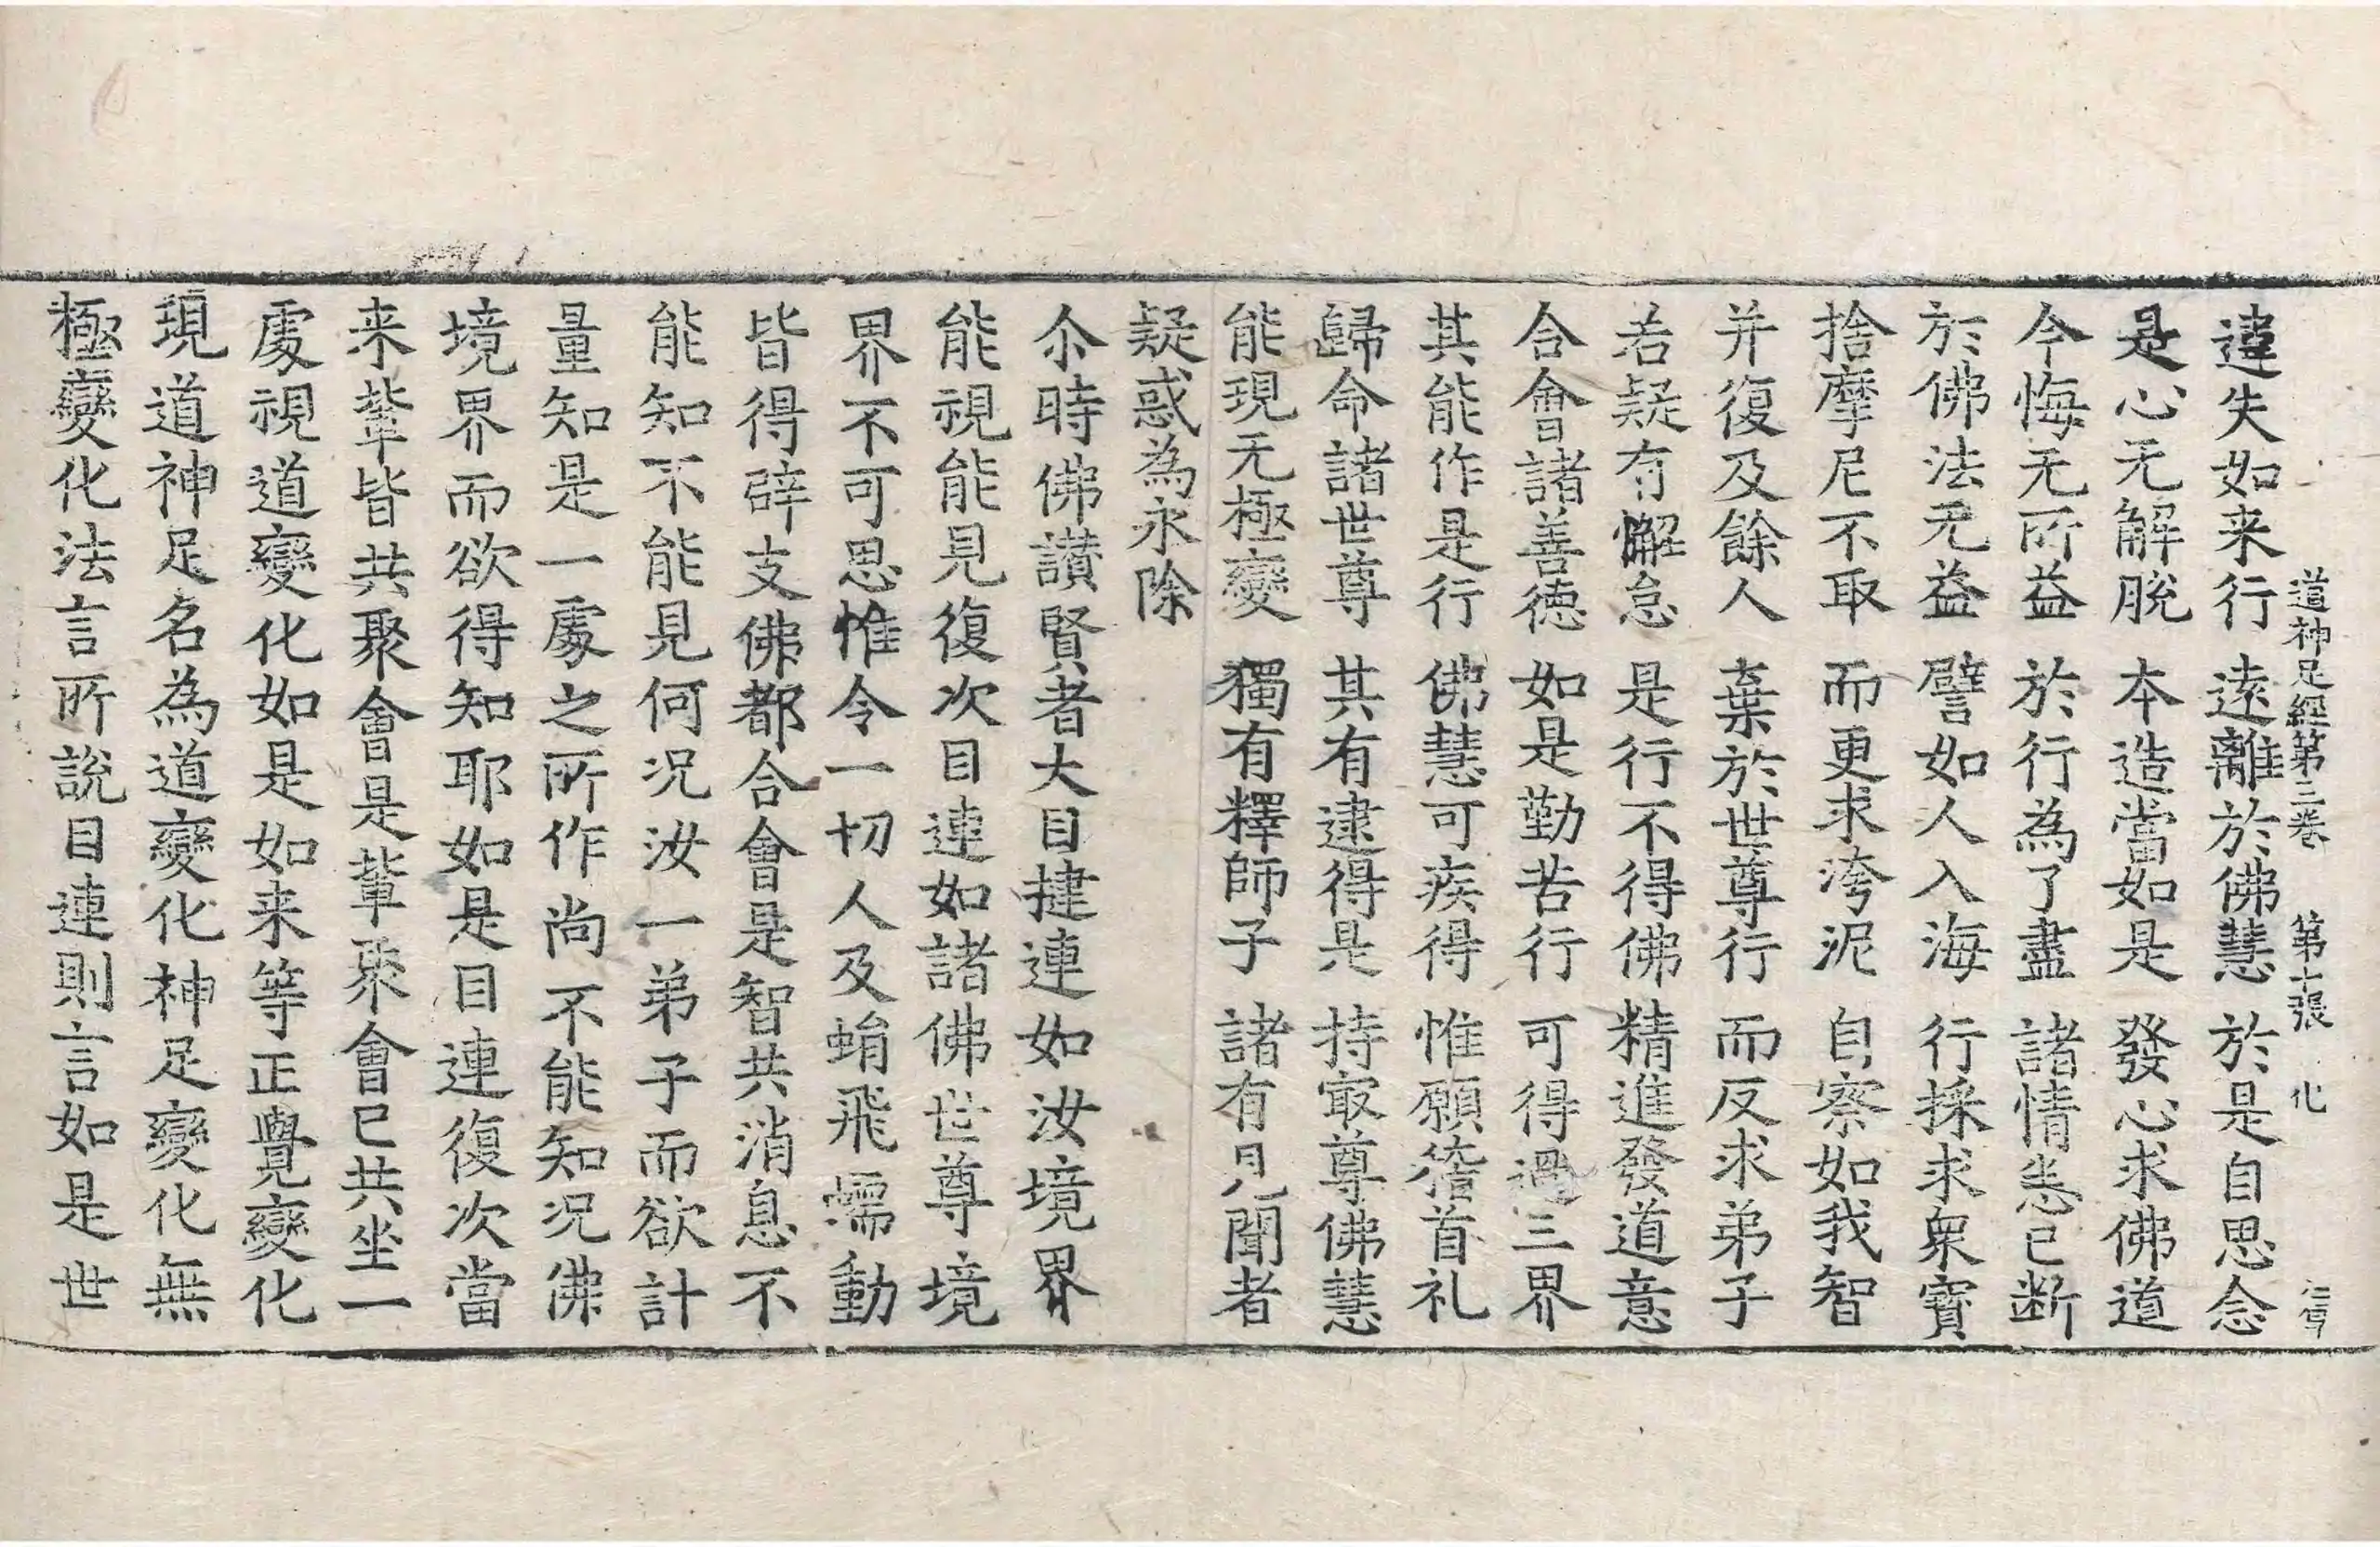 道神足經第三卷 第十張 化
違失如来行 遠離於佛慧 於是自思念
是心无解脫 本造當如是 發心求佛道
今悔无所益 於行為了盡 諸情悉已断
於佛法无益 譬如人入海 行採求衆寶
捨摩尼不取 而更求洿泥 自察如我智
并復及餘人 棄於世尊行 而反求弟子
若疑有懈怠 是行不得佛 精進發道意
合會諸善德 如是勤苦行 可得過三界
其能作是行 佛慧可疾得 惟願稽首礼
歸命諸世尊 其有逮得是 持㝡尊佛慧
能現无極變 獨有釋師子 諸有見聞者
疑惑為永除
尒時佛讚賢者大目揵連如汝境界
能視能見復次目連如諸佛世尊境
界不可思惟令一切人及蜎飛蠕動
皆得辟支佛都合會是智共消息不
能知不能見何况汝一弟子而欲計
量知是一處之所作尚不能知况佛
境界而欲得知耶如是目連復次當
来輩皆共聚會是輩聚會已共坐一
處視道變化如是如来等正覺變化
現道神足名為道變化神足變化無
極變化法言所說目連則言如是世